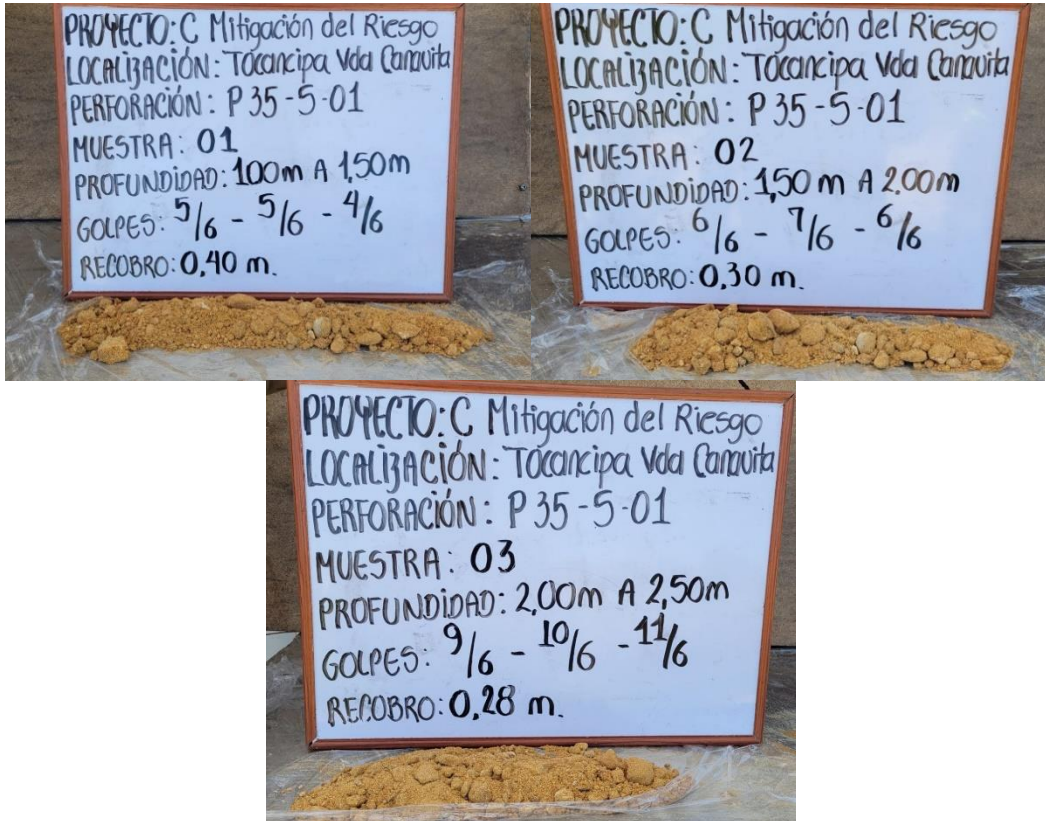 PROYECTO: C Mitigación del Riesgo
LOCALIZACIÓN: Tocancipa Vda Canavita
PERFORACIÓN: P 35-5-01
MUESTRA: 01
PROFUNDIDAD: 1,00m A 1,50m
GOLPES: 5/6 - 5/6 - 4/6
RECOBRO: 0,40 m.
PROYECTO: C Mitigación del Riesgo
LOCALIZACIÓN: Tocancipa Vda Canavita
PERFORACIÓN: P 35-5-01
MUESTRA: 02
PROFUNDIDAD: 1,50 m A 2,00m
GOLPES: 6/6 - 7/6 - 6/6
RECOBRO: 0,30 m.
PROYECTO: C Mitigación del Riesgo
LOCALIZACIÓN: Tocancipa Vda Canavita
PERFORACIÓN: P 35-5-01
MUESTRA: 03
PROFUNDIDAD: 2,00m A 2,50m
GOLPES: 9/6 - 10/6 - 11/6
RECOBRO: 0,28 m.